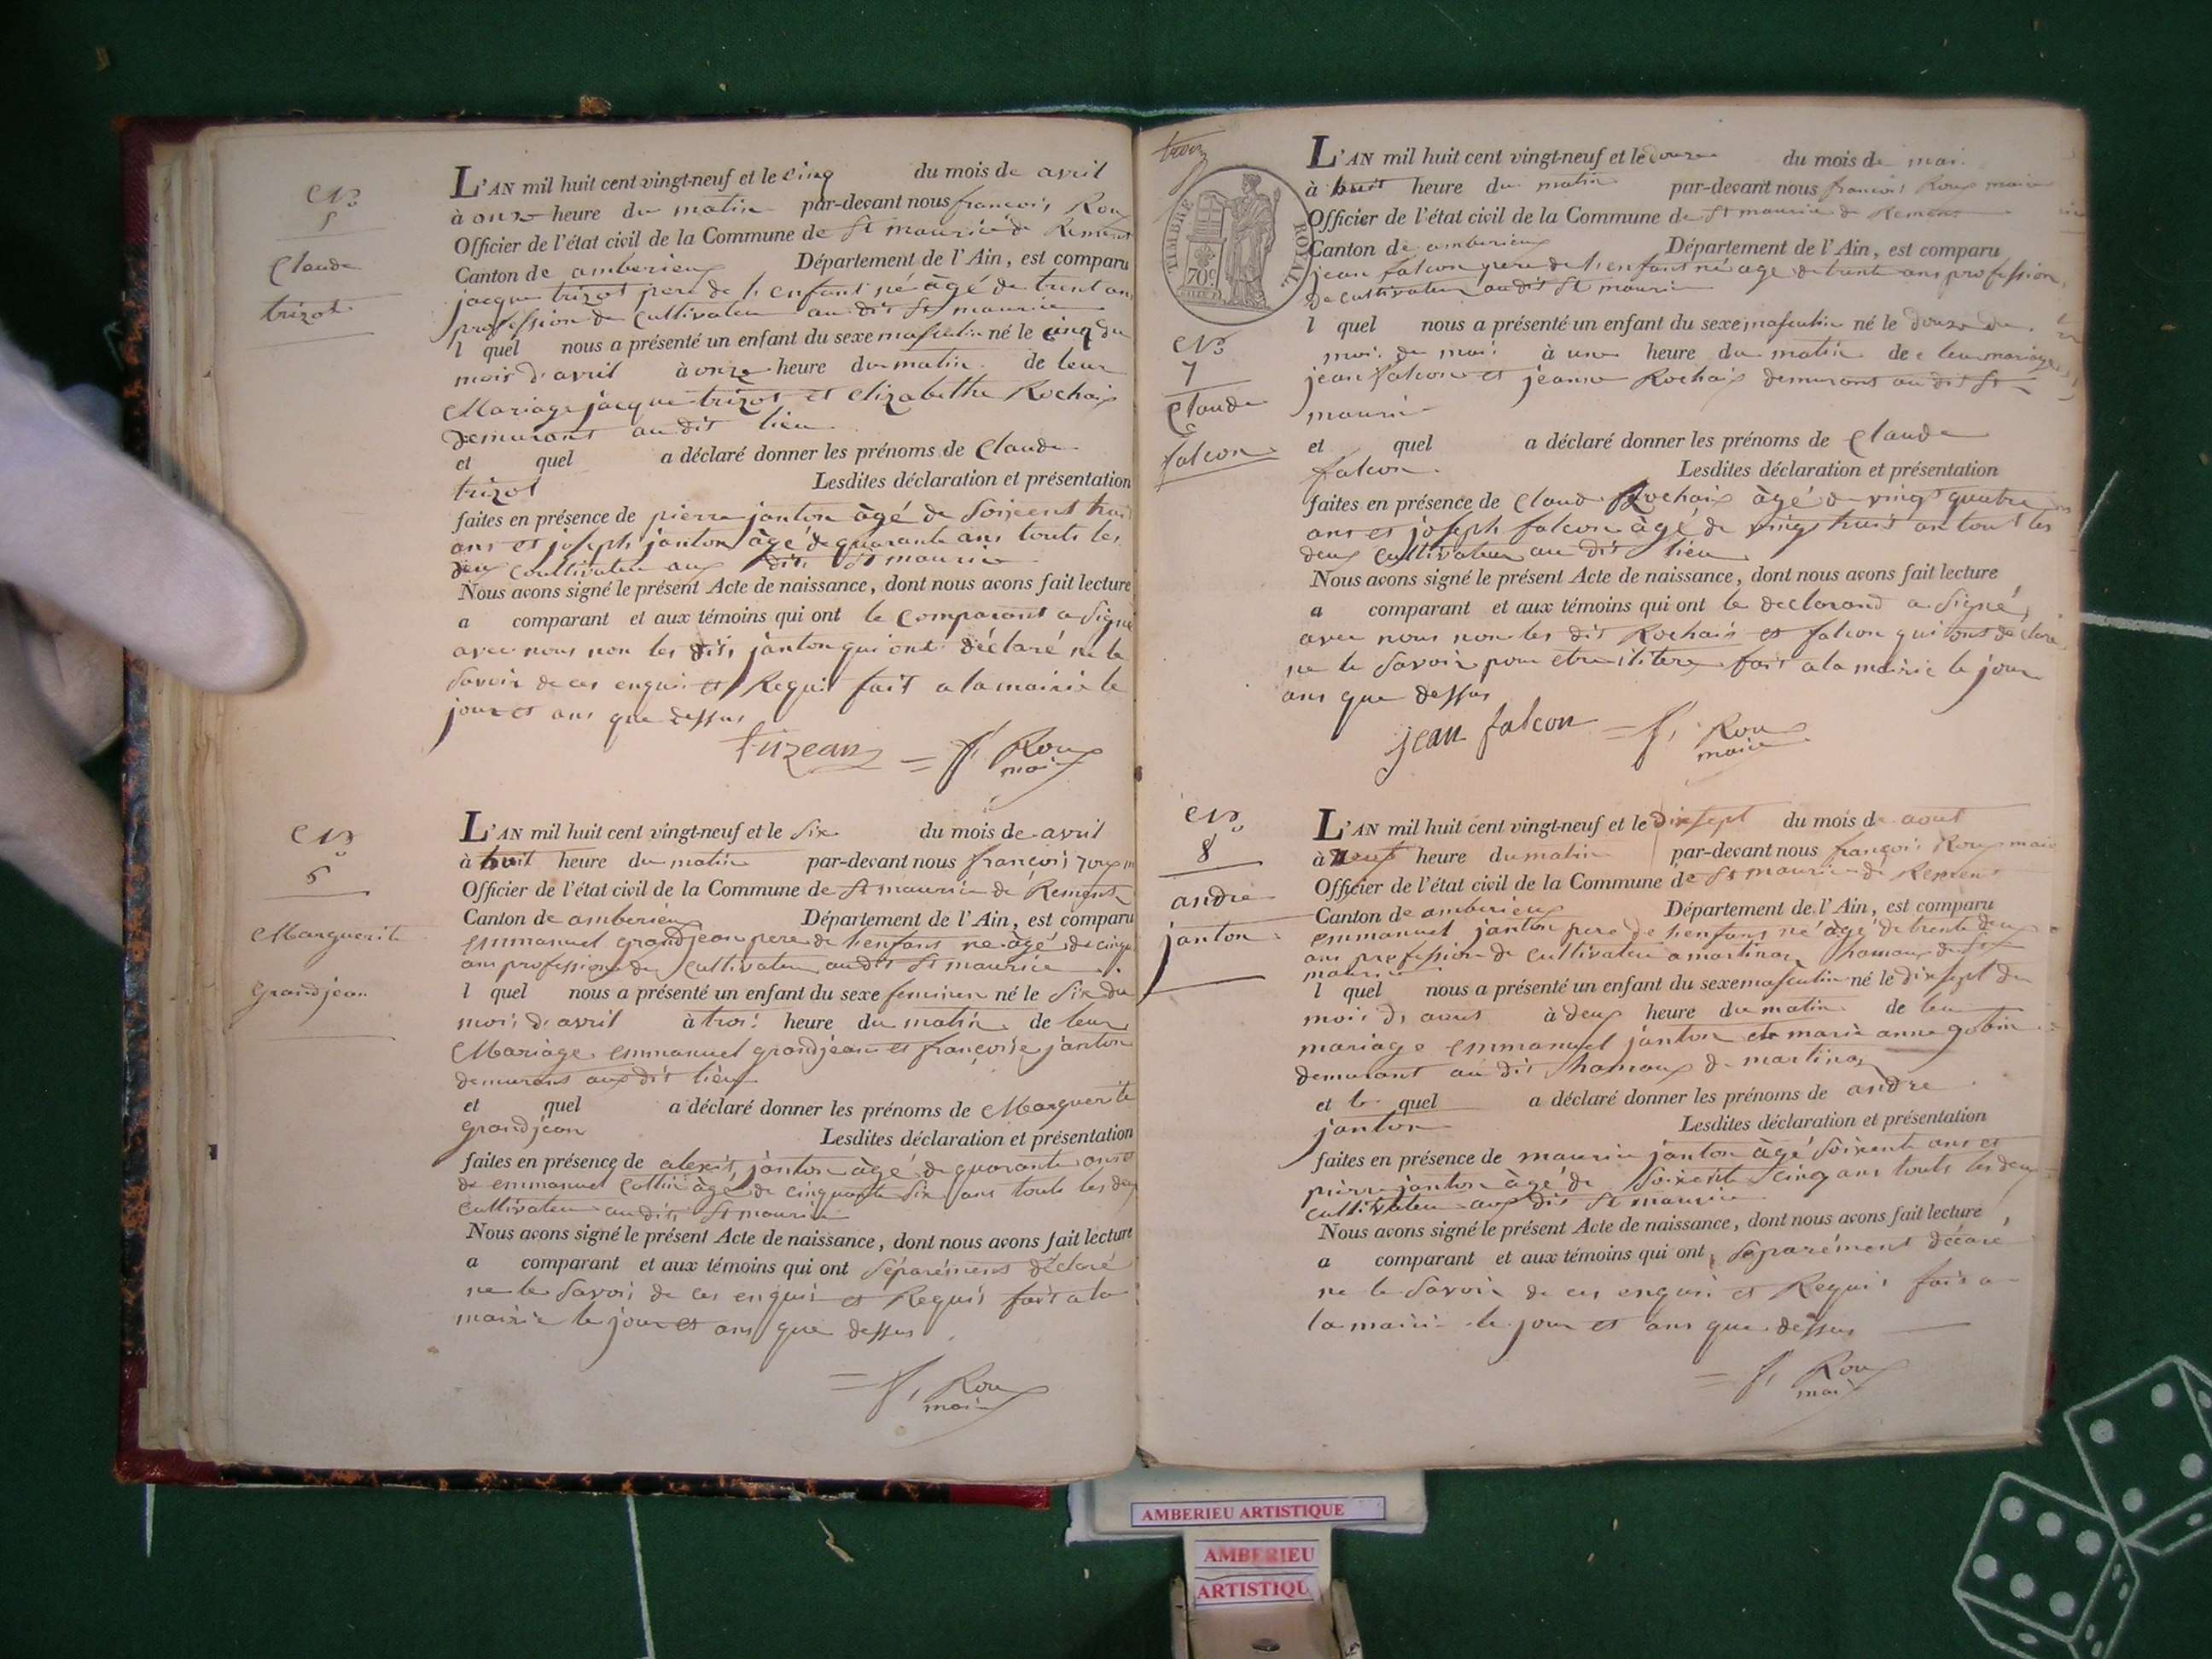 No
5
Claude
trizot
L'AN mil huit cent vingt-neuf et le cinq du mois de avril
à onze heure du matin par-devant nous françois Roux
Officier de l'état civil de la Commune de St maurice de Remens
Canton de amberieux Département de l'Ain, est comparu
jacque trizot pere de l'enfant né âgé de trent ans
profession de cultivateur au dit St maurice
l quel nous a présenté un enfant du sexe masculin né le cinq du
mois d'avril à onze heure du matin de leur
Mariage jacque trizot et elizabethe Rochaix
demurant au dit lieu
et quel a déclaré donner les prénoms de Claude
trizot Lesdites déclaration et présentation
faites en présence de pierre janton âgé de soixent trois
ans et joseph janton âgé de quarante ans touts les
deux coultivateur aux dits St maurice
Nous avons signé le présent Acte de naissance, dont nous avons fait lecture
a comparant et aux témoins qui ont le comparant a signé
avec nous non les dits janton qui ont déclaré ne le
savoir de ces enquis et Requis fait a la mairie le
jour et ans que dessus
= f. Roux
maire
No
6
Marguerite
grandjean
L'AN mil huit cent vingt-neuf et le six du mois de avril
à huit heure du matin par-devant nous françois roux m
Officier de l'état civil de la Commune de St maurice de Remens
Canton de amberieux Département de l'Ain, est comparu
emmanuel grandjean pere de l'enfans né âgé de cinqu
ans profession de cultivateur au dit St maurice
l quel nous a présenté un enfant du sexe feminen né le six du
mois d'avril à trois heure du matin de leur
Mariage emmanuel grandjean et françoise janton
demurans aux dit lieux
et quel a déclaré donner les prénoms de Marguerite
grandjean Lesdites déclaration et présentation
faites en présence de alexis janton âgé de quarante ans et
de emmanuel Cottin âgé de cinquante six ans touts les deux
cultivateur au dits St maurice
Nous avons signé le présent Acte de naissance, dont nous avons fait lecture
a comparant et aux témoins qui ont séparément déclaré
ne le savoir de ces enquis et Requis fait a la
mairie le jour et ans que dessus
= f. Roux
maire
trois
TIMBRE ROYAL
70c
No
7
Claude
falcon
L'AN mil huit cent vingt-neuf et le douze du mois de mai
à huit heure du matin par-devant nous françois Roux maire
Officier de l'état civil de la Commune de St maurice de Remens
Canton de amberieux Département de l'Ain, est comparu
jean falcon pere de l'enfant né age de trente ans profession
de cultivateur au dit St maurice
l quel nous a présenté un enfant du sexe masculin né le douze du
mois de mai à une heure du matin de leur mariage
jean falcon et jeanne Rochaix demurant au dit St
maurice
et quel a déclaré donner les prénoms de Claude
falcon Lesdites déclaration et présentation
faites en présence de Claude Rochaix âgé de vingt quatre
ans et joseph falcon âgé de vingt huit an tout les
deux cultivateur au dit lieu
Nous avons signé le présent Acte de naissance, dont nous avons fait lecture
a comparant et aux témoins qui ont le declarand a signé
avec nous non les dit Rochaix et falcon qui ont déclaré
ne le savoir pour etre ilitere fait a la mairie le jour
ans que dessus
jean falcon = f. Roux
maire
No
8
andre
janton
L'AN mil huit cent vingt-neuf et le dixsept du mois de aout
à neuf heure du matin par-devant nous françois Roux maire
Officier de l'état civil de la Commune de St maurice de Remens
Canton de amberieux Département de l'Ain, est comparu
emmanuel janton pere de l'enfans né âgé de trente deux
ans profession de cultivateur a martinaz hamaux de St
maurice
l quel nous a présenté un enfant du sexe masculin né le dixsept du
mois d'aout à deux heure du matin de leur
mariage emmanuel janton et marie anne gobin
demurant au dit hamaux de martinaz
et le quel a déclaré donner les prénoms de andre
janton Lesdites déclaration et présentation
faites en présence de maurice janton âgé soixente ans et
pierre janton âgé de soixente cinq ans touts les deux
cultivateur aux dit St maurice
Nous avons signé le présent Acte de naissance, dont nous avons fait lecture
a comparant et aux témoins qui ont séparément décaré
ne le savoir de ces enquis et Requis fait a
la mairie le jour et ans que dessus
= f. Roux
maire
AMBERIEU ARTISTIQUE
AMBERIEU
ARTISTIQU